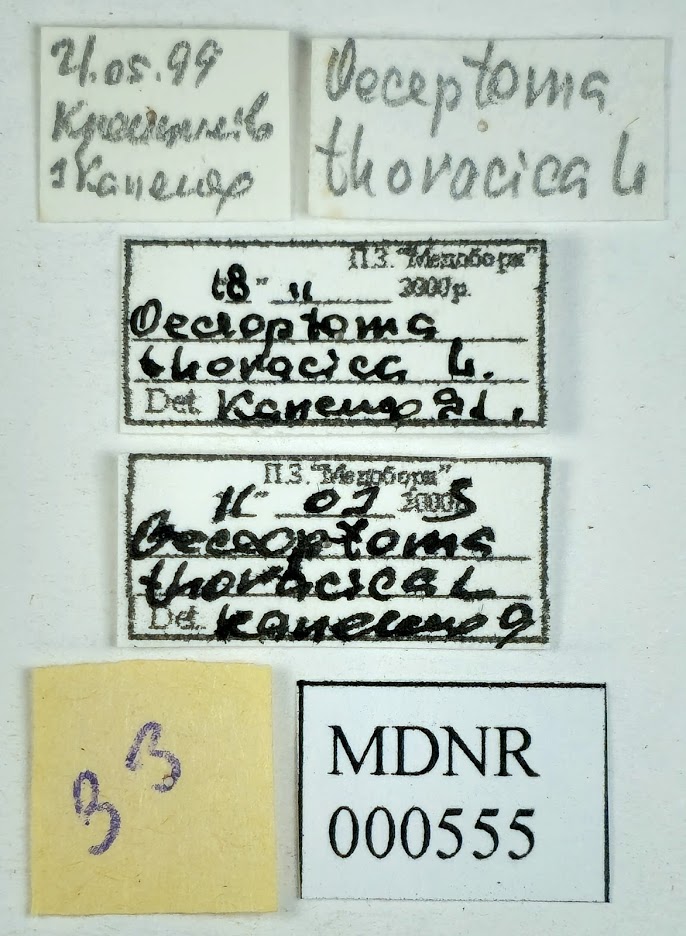 21.05.99
Красилів
Капелюх
Oeceptoma
thoracica L
П.З. "Медобори"
18" " 2000р.
Oeceoptoma
thoracica L.
Det. Капелюх Я.І.
П.З. "Медобори"
11" 01 2000 5
Oeceoptoma
thoracica L
Det. Капелюх Я
33
MDNR
000555